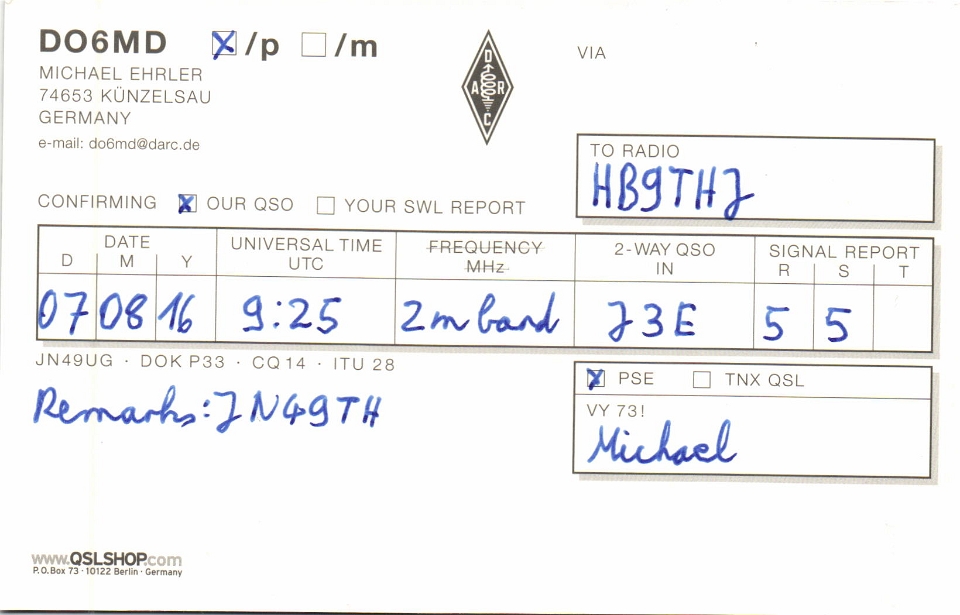 DO6MD /p /m
MICHAEL EHRLER
74653 KÜNZELSAU
GERMANY
e-mail: do6md@darc.de
D
A R
C
VIA
TO RADIO
HB9THJ
CONFIRMING OUR QSO YOUR SWL REPORT
DATE UNIVERSAL TIME FREQUENCY 2-WAY QSO SIGNAL REPORT
D M Y UTC MHz IN R S T
07 08 16 9:25 2m band J3E 5 5
JN49UG · DOK P33 · CQ 14 · ITU 28
Remarks: JN49TH
PSE TNX QSL
VY 73!
Michael
www.QSLSHOP.com
P.O.Box 73 · 10122 Berlin · Germany